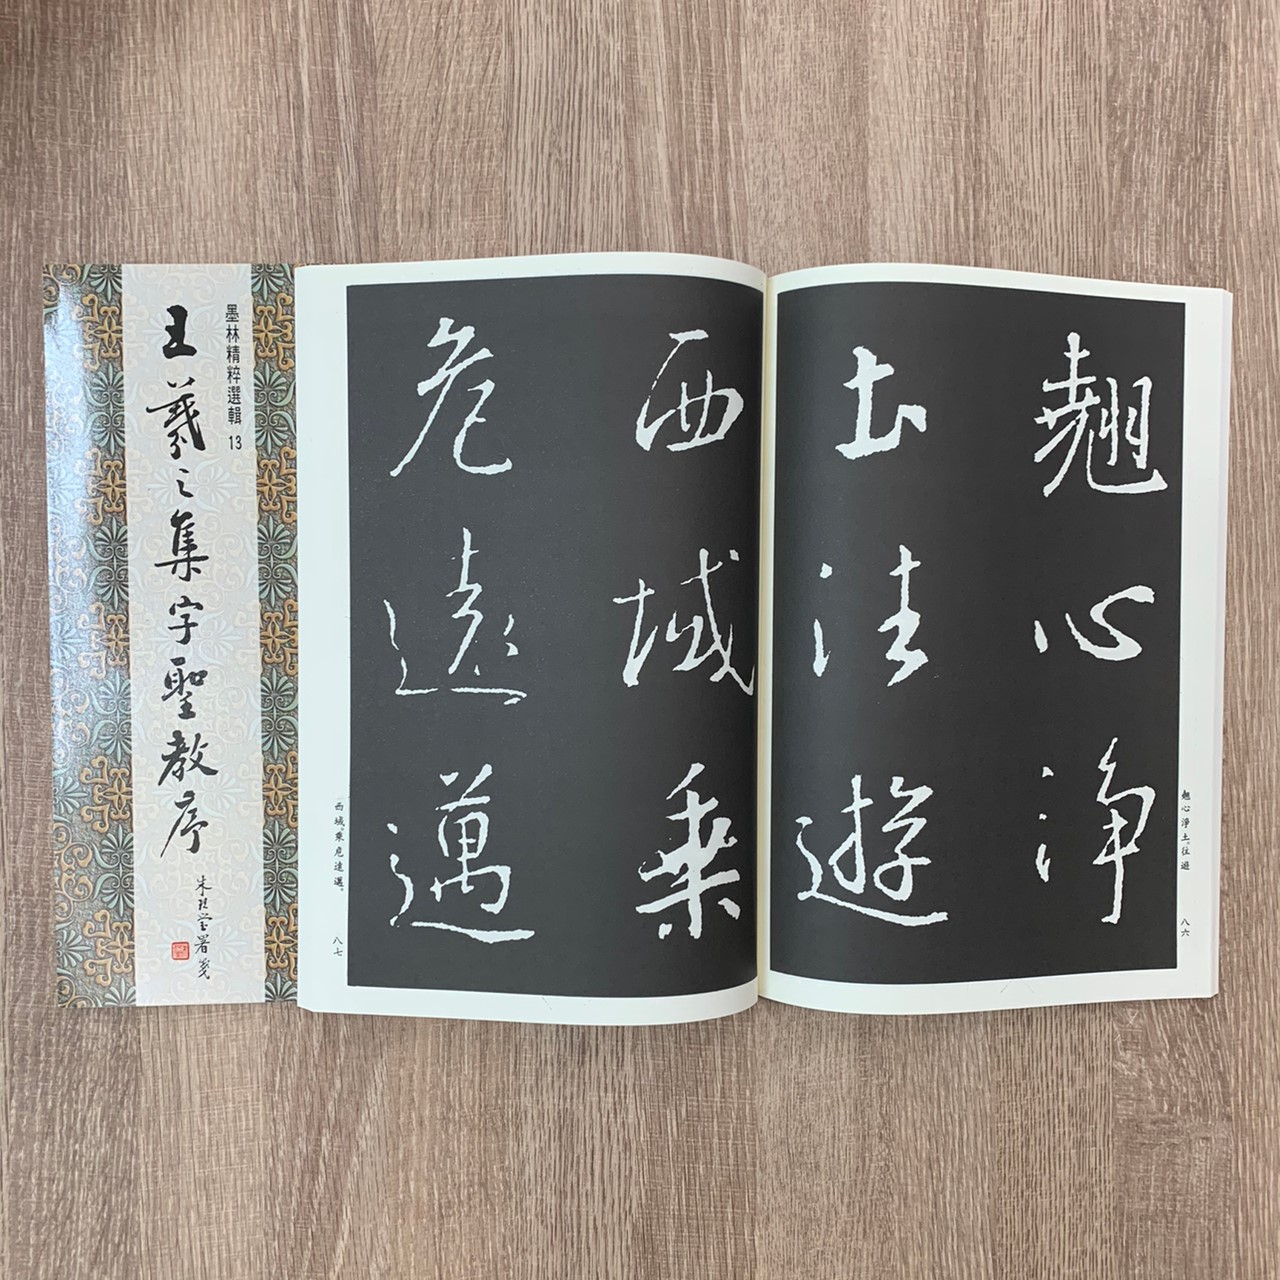 墨林精粹選輯 13
王羲之集字聖教序
朱玖瑩署箋
翹心淨
土法遊
西域乘
危遠邁
翹心淨土。往遊
八六
西域。乘危遠邁。
八七